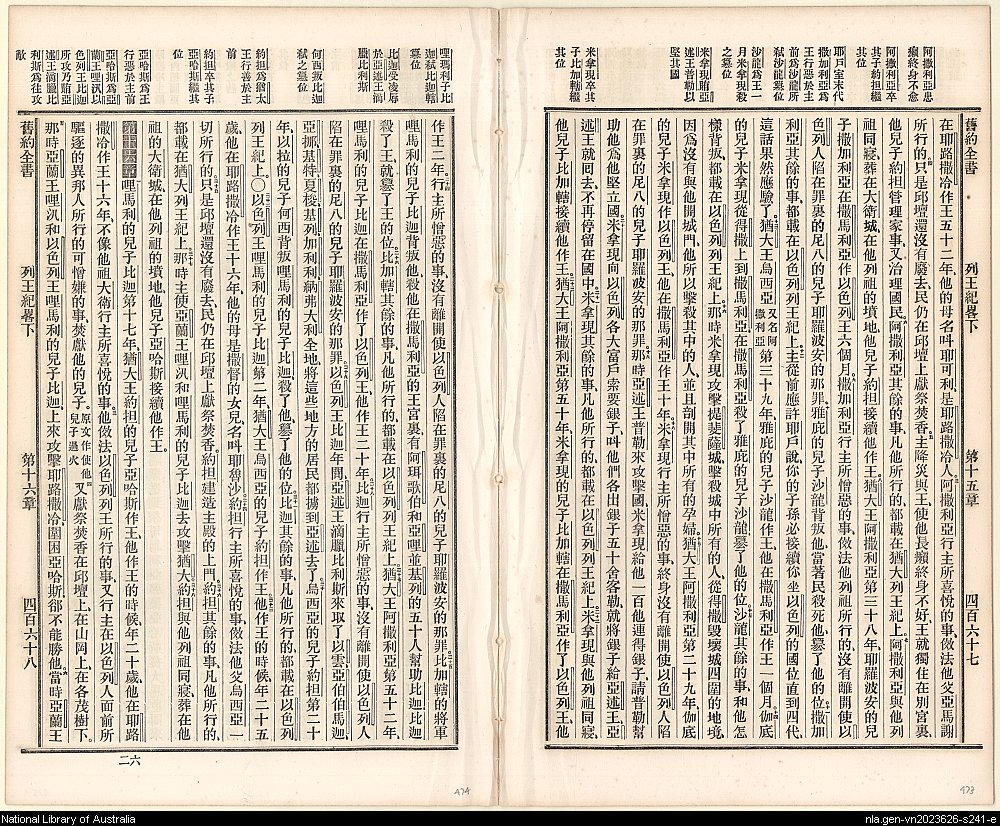 阿撒利亞患
癩終身不愈
阿撒利亞卒
其子約担繼
其位
耶戶室末代
撒加利亞爲
王行惡於主
前爲沙龍所
弒沙龍篡位
沙龍爲王一
月米拿現殺
之篡位
米拿現賄亞
述王普勒以
堅其國
米拿現卒其
子比加轄繼
其位
舊約全書 列王紀畧下 第十五章 四百六十七
在耶路撒冷作王五十二年、他的母名叫耶可利、是耶路撒冷人、阿撒利亞行主所喜悅的事、倣法他父亞馬謝
所行的、只是邱壇還沒有廢去、民仍在邱壇上獻祭焚香、主降災與王、使他長癩、終身不好、王就獨住在別宮裏、
他兒子約担管理家事、又治理國民、阿撒利亞其餘的事、凡他所行的、都載在猶大列王紀上、阿撒利亞與他列
祖同寢、葬在大衛城、在他列祖的墳地、他兒子約担接續他作王、猶大王阿撒利亞第三十八年、耶羅波安的兒
子撒加利亞在撒馬利亞作以色列王六個月、撒加利亞行主所憎惡的事、倣法他列祖所行的、沒有離開使以
色列人陷在罪裏的尼八的兒子耶羅波安的那罪、雅庇的兒子沙龍背叛他、當著民殺死他、篡了他的位、撒加
利亞其餘的事、都載在以色列列王紀上、主從前應許耶戶說、你的子孫必接續你坐以色列的國位直到四代、
這話果然應驗了、猶大王烏西亞又名阿撒利亞第三十九年、雅庇的兒子沙龍作王、他在撒馬利亞作王一個月、伽底
的兒子米拿現從得撒上到撒馬利亞、在撒馬利亞殺了雅庇的兒子沙龍、篡了他的位、沙龍其餘的事、和他怎
樣背叛、都載在以色列列王紀上、那時米拿現攻擊提斐薩城、擊殺城中所有的人、從得撒毀壞城四圍的地境、
因爲沒有與他開城門、他所以擊殺其中的人、並且剖開其中所有的孕婦、猶大王阿撒利亞第三十九年、伽底
的兒子米拿現作以色列王、他在撒馬利亞作王十年、米拿現行主所憎惡的事、終身沒有離開使以色列人陷
在罪裏的尼八的兒子耶羅波安的那罪、那時亞述王普勒來攻擊國、米拿現給他一百他連得銀子、請普勒幫
助他爲他堅立國、米拿現向以色列各大富戶索要銀子、叫他們各出銀子五十舍客勒、就將銀子給亞述王、亞
述王就回去、不再停留在國中、米拿現其餘的事、凡他所行的、都載在以色列列王紀上、米拿現與他列祖同寢、
他兒子比加轄接續他作王、猶大王阿撒利亞第五十年、米拿現的兒子比加轄在撒馬利亞作了以色列王、他
473
哩瑪利子比
迦弒比加轄
篡位
比迦受凌辱
於亞述王滴
臘比利斯
何西叛比迦
弒之篡位
約担爲猶太
王行善於主
前
約担卒其子
亞哈斯繼其
位
亞哈斯爲王
行惡於主前
亞哈斯爲亞
蘭王哩汎以
色列王比迦
所攻乃賄亞
述王滴臘比
利斯爲往攻
敵
作王二年、行主所憎惡的事、沒有離開使以色列人陷在罪裏的尼八的兒子耶羅波安的那罪、比加轄的將軍
哩馬利的兒子比迦背叛他、殺他在撒馬利亞的王宮裏、有阿珥歌伯和亞哩並基列的五十人幫助比迦、比迦
殺了王、就篡了王的位、比加轄其餘的事、凡他所行的、都載在以色列列王紀上、猶大王阿撒利亞第五十二年、
哩馬利的兒子比迦在撒馬利亞作了以色列王、他作王二十年、比迦行主所憎惡的事、沒有離開使以色列人
陷在罪裏的尼八的兒子耶羅波安的那罪、以色列王比迦年間、亞述王滴臘比利斯來取了以雲、亞伯伯馬迦、
亞挪、基特、夏梭、基列、加利利、納弗大利全地、將這些地方的居民都擄到亞述去了、烏西亞的兒子約担第二十
年、以拉的兒子何西背叛哩馬利的兒子比迦、殺了他、篡了他的位、比迦其餘的事、凡他所行的、都載在以色列
列王紀上、〇以色列王哩馬利的兒子比迦第二年、猶大王烏西亞的兒子約担作王、他作王的時候、年二十五
歲、他在耶路撒冷作王十六年、他的母是撒督的女兒、名叫耶魯沙、約担行主所喜悅的事、倣法他父烏西亞一
切所行的、只是邱壇還沒有廢去、民仍在邱壇上獻祭焚香、約担建造主殿的上門、約担其餘的事、凡他所行的、
都載在猶大列王紀上、那時主使亞蘭王哩汎和哩馬利的兒子比迦去攻擊猶大、約担與他列祖同寢、葬在他
祖的大衛城、在他列祖的墳地、他兒子亞哈斯接續他作王、
第十六章哩馬利的兒子比迦第十七年、猶大王約担的兒子亞哈斯作王、他作王的時候、年二十歲、他在耶路
撒冷作王十六年、不像他祖大衛行主所喜悅的事、他倣法以色列王所行的事、又行主在以色列人面前所
驅逐的異邦人所行的可憎嫌的事、焚獻他的兒子、原文作使他兒子過火又獻祭焚香在邱壇上、在山岡上、在各茂樹下、
那時亞蘭王哩汎和以色列王哩馬利的兒子比迦、上來攻擊耶路撒冷、圍困亞哈斯、郤不能勝他、當時亞蘭王
舊約全書 列王紀畧下 第十六章 四百六十八
二六
474
National Library of Australia
nla.gen-vn2023626-s241-e